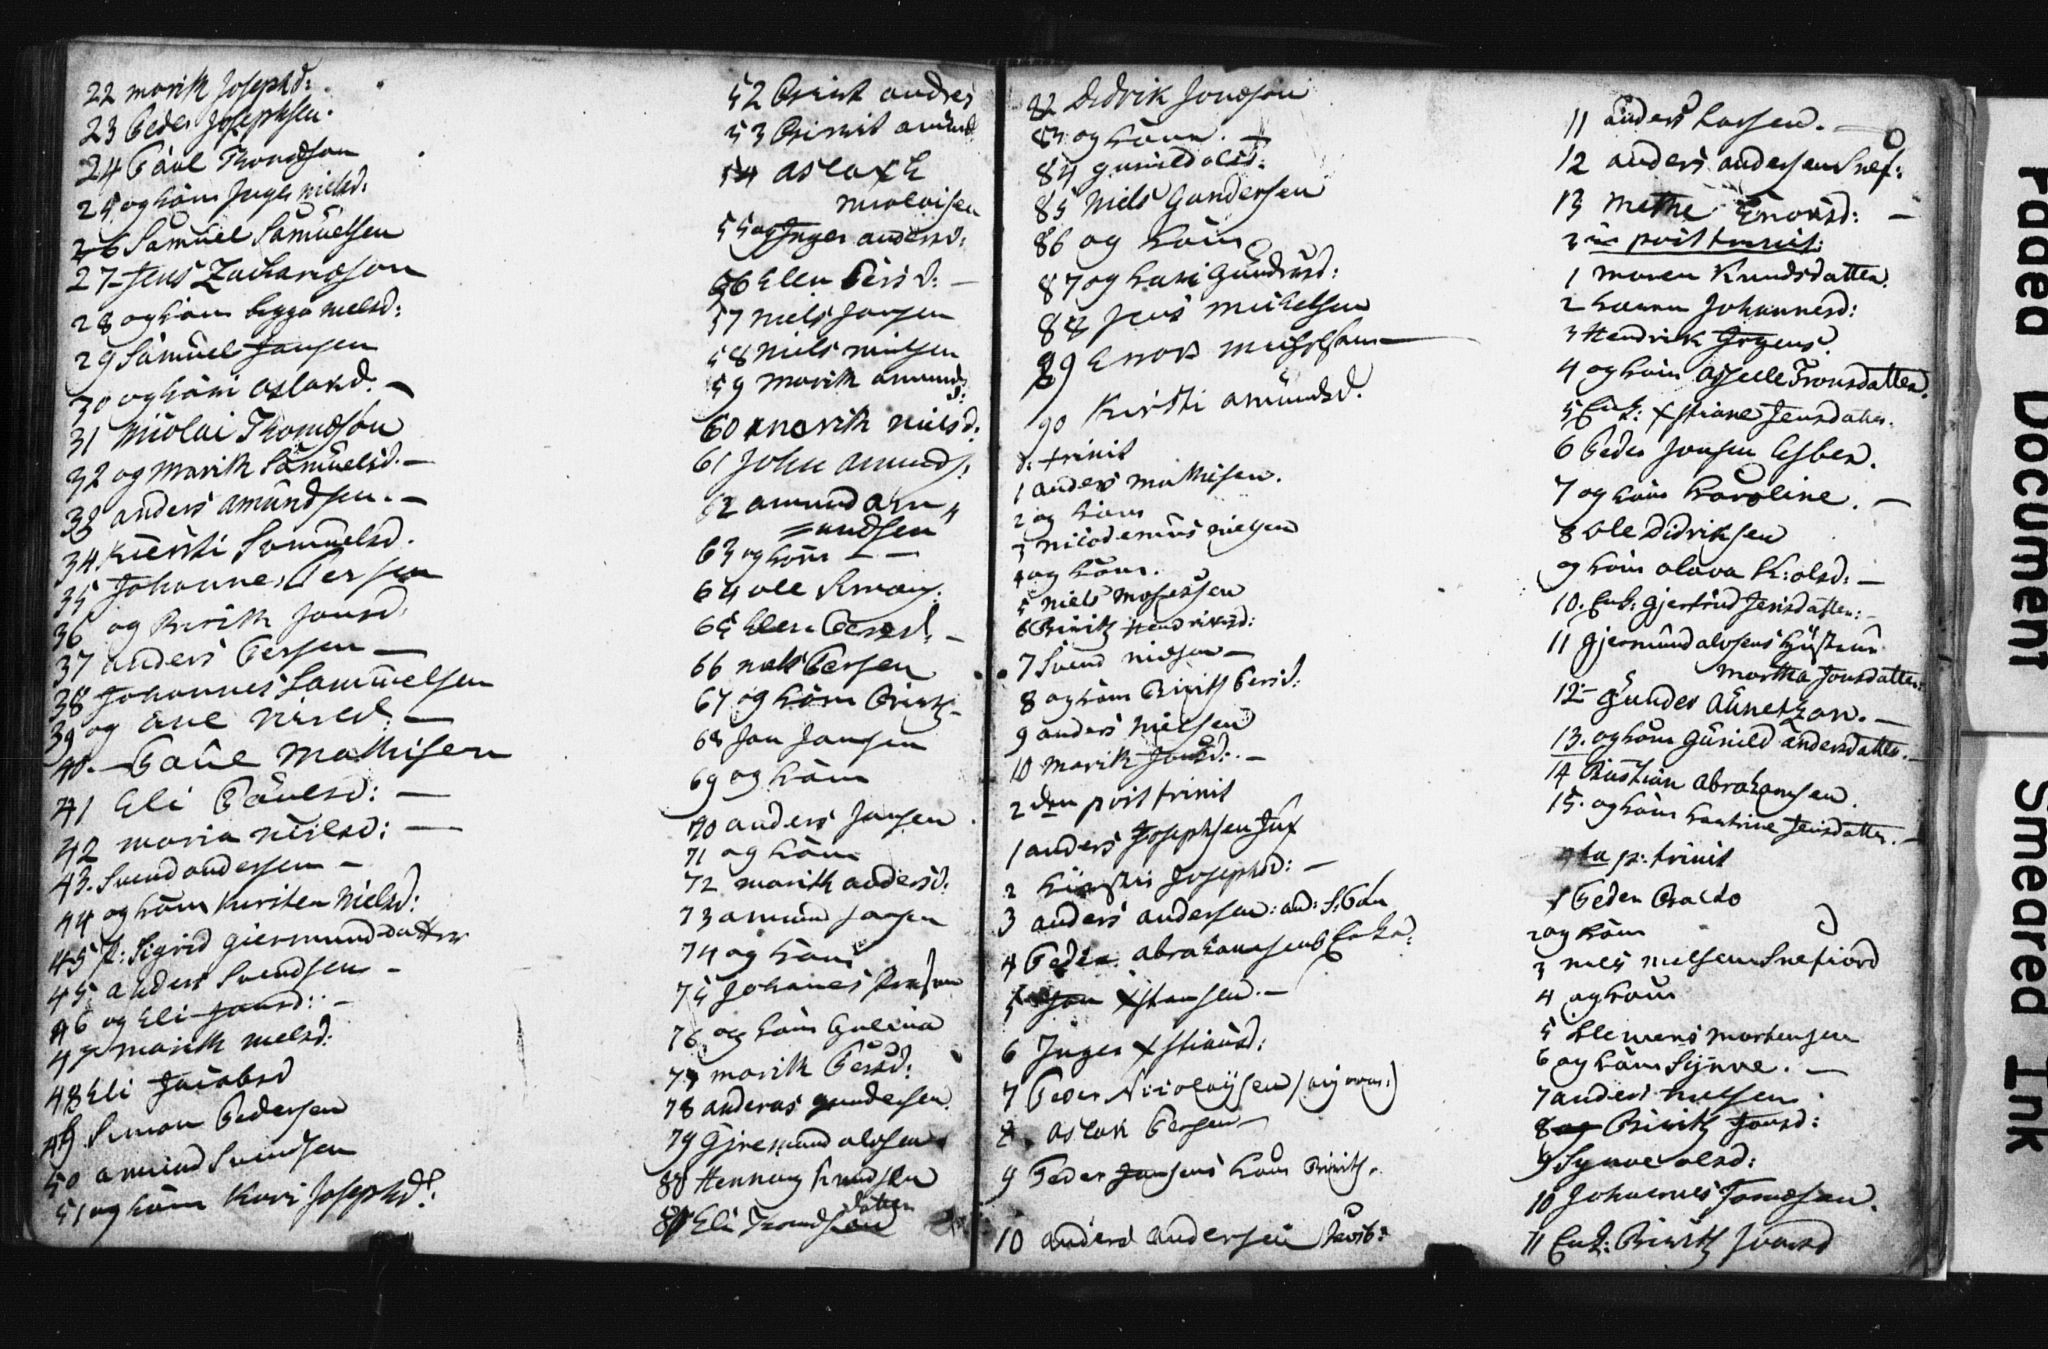 22 marith Josephd:
23 Peder Josephsen.
24 Paul Thomæson
25 og hans Inger nielsd:
26 Samuel Samuelsen
27 Jens Zachariæson
28 og hans begga nielsd:
29 Samuel Jansen
30 og hans aslaxd. —
31 Nicolai Thomæson
32 og Marith Samuelsd. —
33 anders amundsen. —
34 Kiersti Samuelsd.
35 Johannes Persen
36 og Birith Jonsd:
37 anders Persen —
38 Johannes Samuelsen
39 og ane nielsd: —
40. — Paul Mathisen
41 Eli Paulsd: —
42 maria nielsd: —
43. Svend andersen —
44 og hans Kirsten Nielsd:
45 p: Sigrid giermundsdatter
45 anders Svendsen —
46 og Eli Jansd: —
47 marith nielsd:
48 Eli Jacobsd
49 Simon Pedersen
50 amund Svendsen
51 og hans Kari Josephsd:
52 Birit anders
53 Birrit amund
54 aslak
nicolaisen
55 og Inger andersd:
56 Ellen Persd: —
57 niels Jansen
58 Niels nielsen
59 Marith amunds
d:
60 marith nielsd:
61 John amunds:
62 amund am
=undsen
63 og hans — —
64 ole
65 Ellen Persd: —
66 niels Persen
67 og hans Birith
68 Jan Jansen
69 og hans
70 anders Jansen
71 og hans
72 marith andersd:
73 amund Jansen
74 og hans
75 Johanes
76 og hans
77 marith Persd:
78 anderas gundersen
79 Gjermund olosen
80 Henning Knudsen
81 Eli Thomdsdatter
82 Didrik Jonæson
83 og hans. —
84 gunild olsd:
85 Niels Gundersen
86 og hans
87 og Kari Gundersd:
88 Jens Michelsen
89 Enok Michelsen —
90 Kirsti amundsd.
d: trinit
1 anders mathisen.
2 og hans
3 nicodemus nielsen
4 og hans.
5 niels mosessen
6 Birith Hendriksd:
7 Svend nielsen —
8 og hans Birith Persd:
9 anders Nielsen
10 Marith Jonsd: —
2den post trinit
1 anders Josephsen
2 Kirsti Josephd: —
3 anders andersen: and:
4 Peder abrahamsens
5 Jon Xstansen. —
6 Inger Xstiansd:
7 Peder Nicolaysen
8. aslak Persen —
9 Peder Jansens hans Birith.
10 anders andersen
11 anders Larsen. —
12 anders andersen Snef:
13 Methe Enoksd: —
3ie post trinit:
1 maren Knudsdatter.
2 Karen Johannesd:
3 Hendrik
4 og hans Tronsdatter.
5 Enk: Xstiane Jensdatter.
6 Peder Jonsen Esben.
7 og hans Karoline. —
8 ole Didriksen
og hans olava K: olsd: —
10. Enk: gjertrud Jensdatter: —
11 gjermund olosens hustrue
Martha Jonsdatter:
12 — Gunder —
13. og hans gunild andersdatter. —
14 Bastian abrahamsen.
15. og hans Kathrine Jensdatter. —
4ta p: trinit
1 Peder
2 og hans
3 niels nielsen Snefiord
4 og hans
5 Klemens Mortensen
6 og hans Synve. —
7 anders nielsen
8 Birith Jonsd:
9 Synve olsd:
10 Johannes Tomæsen.
11 Enk: Birith
Faded Document
Smeared Ink